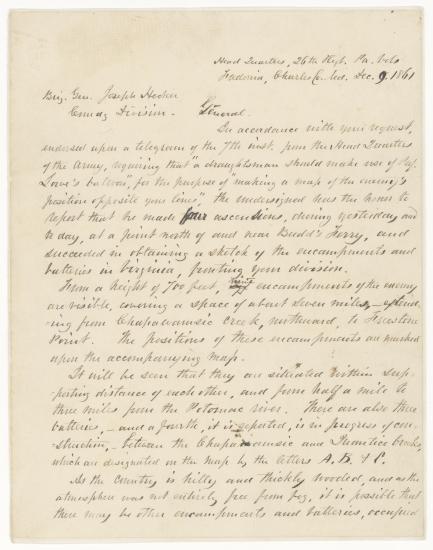 Head Quarters, 26th Regt. Pa. Vols
Ladonia, Charles Co. Md. Dec. 9, 1861
Brig. Gen. Joseph Hooker
Comdg Division. - General.
In accordance with your request,
endorsed upon a telegram of the 7th inst. from the Head Quarters
of the Army, requiring that "a draughtsman should make use of Prof.
Lowe's balloon", for the purpose of "making a map of the enemy's
position opposite your lines", the undersigned has the honor to
report that he made four ascensions, during yesterday and
to day, at a point north of and near Budd's Ferry, and
succeeded in obtaining a sketch of the encampments and
batteries in Virginia, fronting your division.
From a height of 700 feet, encampments of the enemy
are visible, covering a space of about seven miles, - extend-
ing from Chapawamsic Creek, northward, to Freestone
Point. The positions of these encampments are marked
upon the accompanying map.
It will be seen that they are situated within sup-
porting distance of each other, and from half a mile to
three miles from the Potomac river. There are also three
batteries, - and a fourth, it is reported, is in progress of con-
struction, - between the Chapawamsic and Quantico creeks,
which are designated on the map by the letters A, B, & C.
As the country is hilly and thickly wooded, and as the
atmosphere was not entirely free from fog, it is possible that
there may be other encampments and batteries, occupied